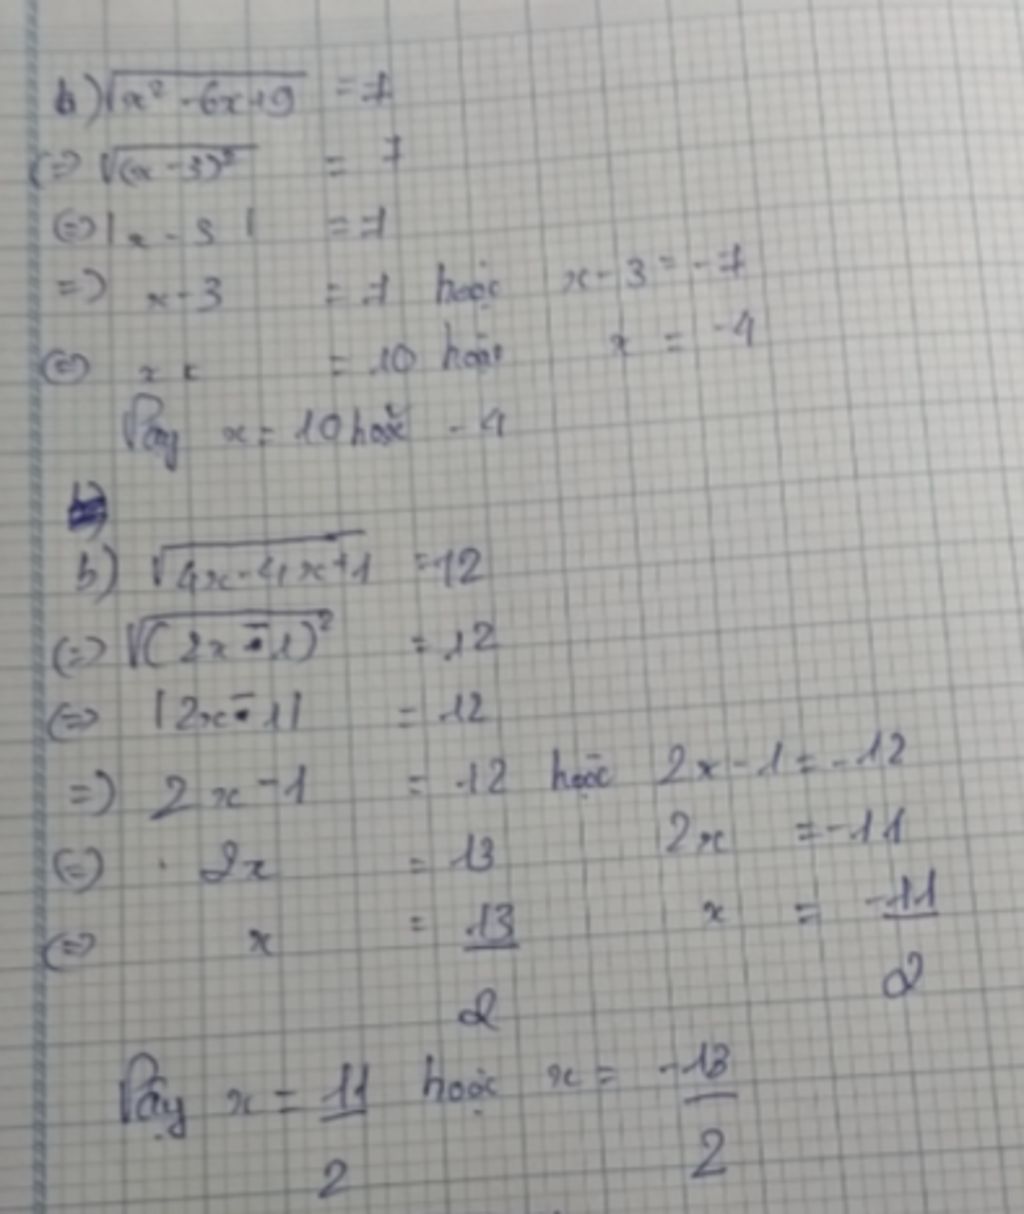 b) √(x² - 6x + 9) = 7
(=> √((x - 3)²) = 7
(=) |x - 3| = 7
=) x - 3 = 7 hoặc x - 3 = -7
(=) x = 10 hoặc x = -4
Vậy x = 10 hoặc - 4
b) √(4x - 4x + 1) = 12
(=) √((2x - 1)²) = 12
(=) |2x - 1| = 12
=) 2x - 1 = 12 hoặc 2x - 1 = -12
(=) 2x = 13 2x = -11
(=) x = 13/2 x = -11/2
Vậy x = 11/2 hoặc x = -13/2